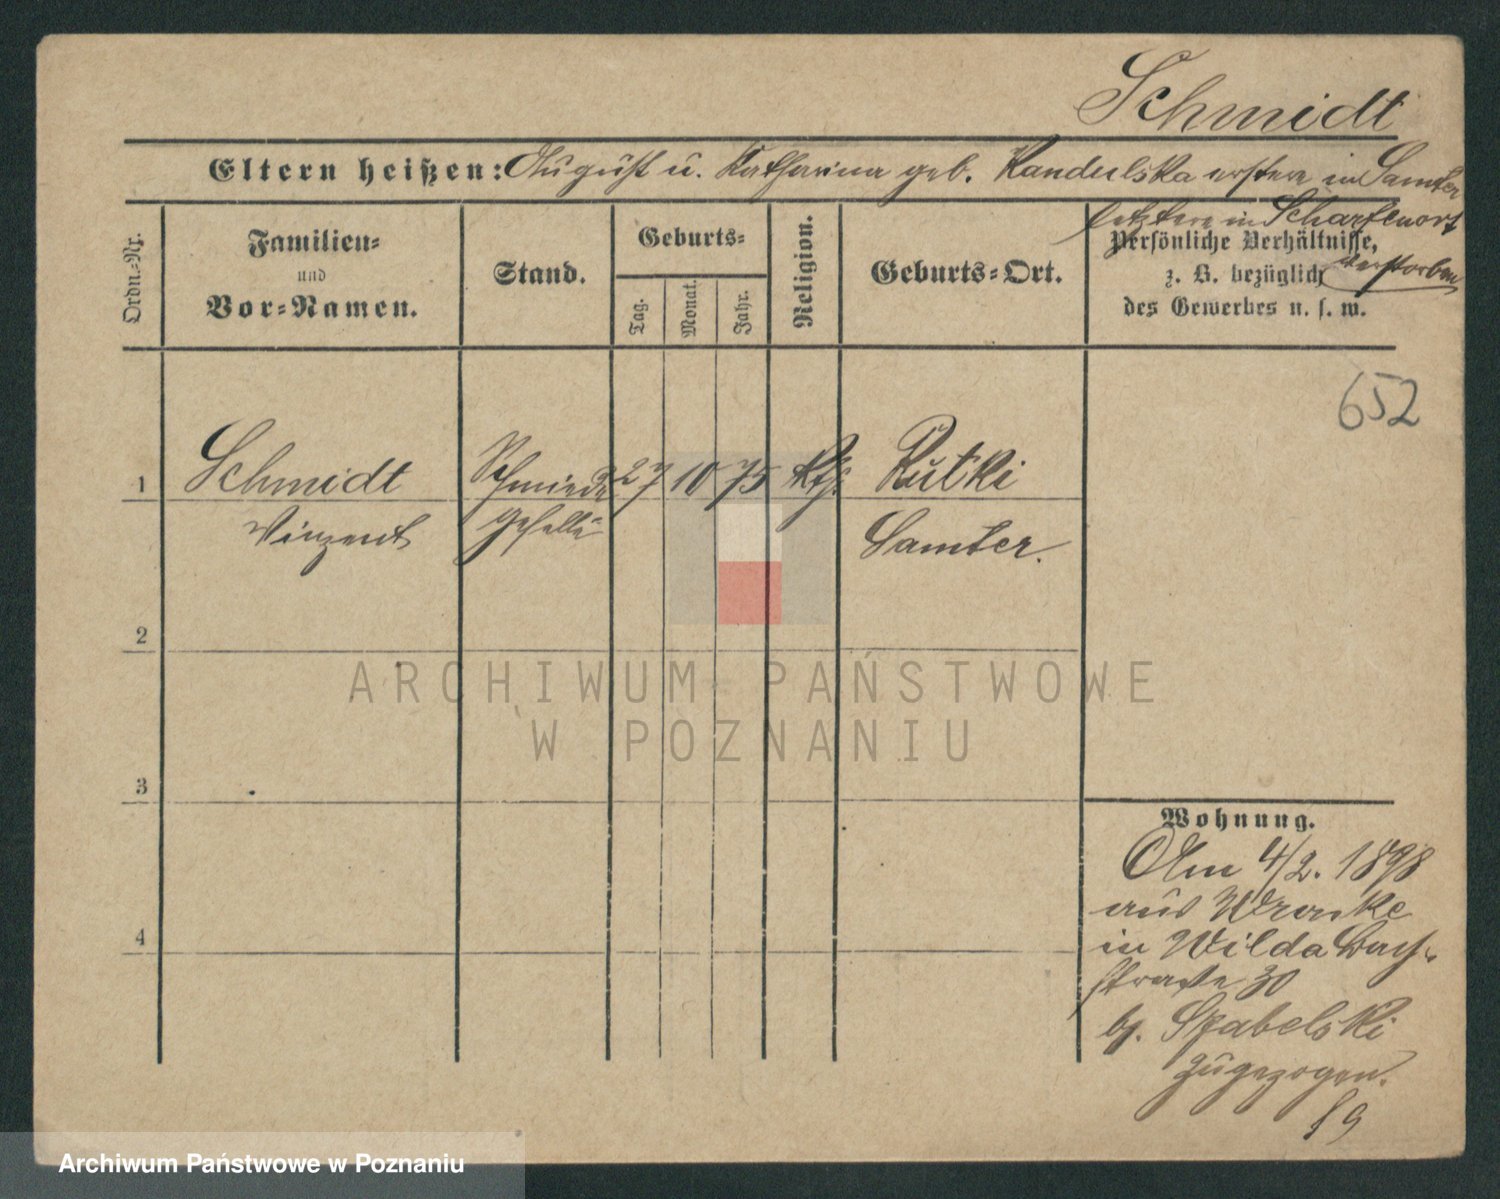 Schmidt
Eltern heißen: August u. Katharina geb. Kandulska erstere in Samter
letztere in Scharfenort
verstorben
Ordn.=Nr.
Familien=
und
Vor=Namen.
Stand.
Geburts=
Tag.
Monat.
Jahr.
Religion.
Geburts=Ort.
Persönliche Verhältnisse,
z. B. bezüglich
des Gewerbes u. s. w.
652
1 Schmidt Schmiede 27 10 75 kth. Rutki
Vinzent geselle Samter.
2
3
4
Wohnung.
Am 4/2. 1898
aus Wronke
in Wilda Bach-
straße 30
bj. Szabelski
zugezogen.
ARCHIWUM PAŃSTWOWE
W POZNANIU
Archiwum Państwowe w Poznaniu